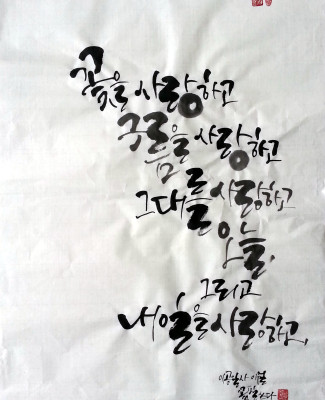 꽃을 사랑하고
구름을 사랑하고
그대를 사랑하고
오늘,
그리고
내일을 사랑하고,